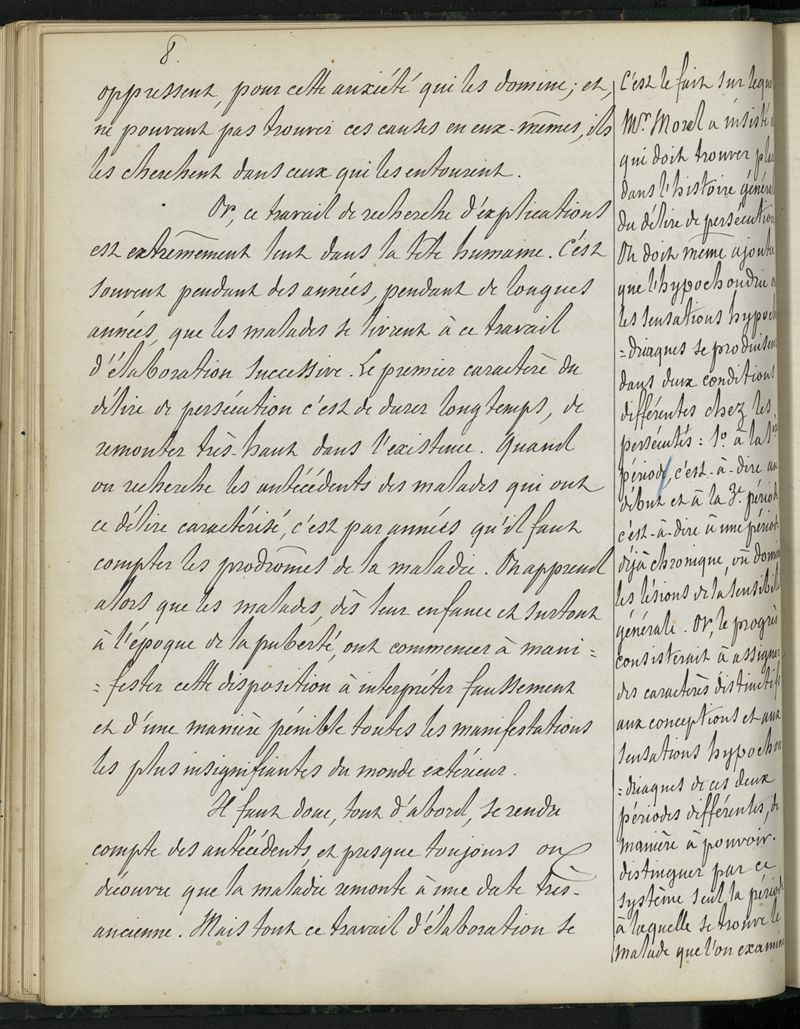 8.
oppressent, pour cette anxiété qui les domine; et,
ne pouvant pas trouver ces causes en eux-mêmes, ils
les cherchent dans ceux qui les entourent.
Or, ce travail de recherche d'explications
est extrêmement lent dans la tête humaine. C'est
souvent pendant des années, pendant de longues
années, que les malades se livrent à ce travail
d'élaboration successive. Le premier caractère du
délire de persécution c'est de durer longtemps, de
remonter très-haut dans l'existence. Quand
on recherche les antécédents des malades qui ont
ce délire caractérisé, c'est par années qu'il faut
compter les prodromes de la maladie. On apprend
alors que les malades, dès leur enfance et surtout
à l'époque de la puberté, ont commencer à mani=
=fester cette disposition à interpréter faussement
et d'une manière pénible toutes les manifestations
les plus insignifiantes du monde extérieur.
Il faut donc, tout d'abord, se rendre
compte des antécédents, et presque toujours on
découvre que la maladie remonte à une date très-
ancienne. Mais tout ce travail d'élaboration se
C'est le fait sur leque
Mr. Morel a insisté
qui doit trouver pla
dans l'histoire généra
du délire de persécution
On doit même ajouter
que l'hypochondrie
les sensations hypoch
=driaques se produisent
dans deux conditions
différentes chez les
persécutés: 1º à la 1re
période, c'est-à-dire au
début et à la 3e périod
c'est-à-dire à une périod
déjà chronique, où domin
les lésions de la sensibili
générale. Or, le progrès
consisterait à assigner
des caractères distinctifs
aux conceptions et aux
sensations hypochon
=driaques de ces deux
périodes différentes, de
manière à pouvoir
distinguer par ce
système seul la périod
à laquelle se trouve le
malade que l'on examine